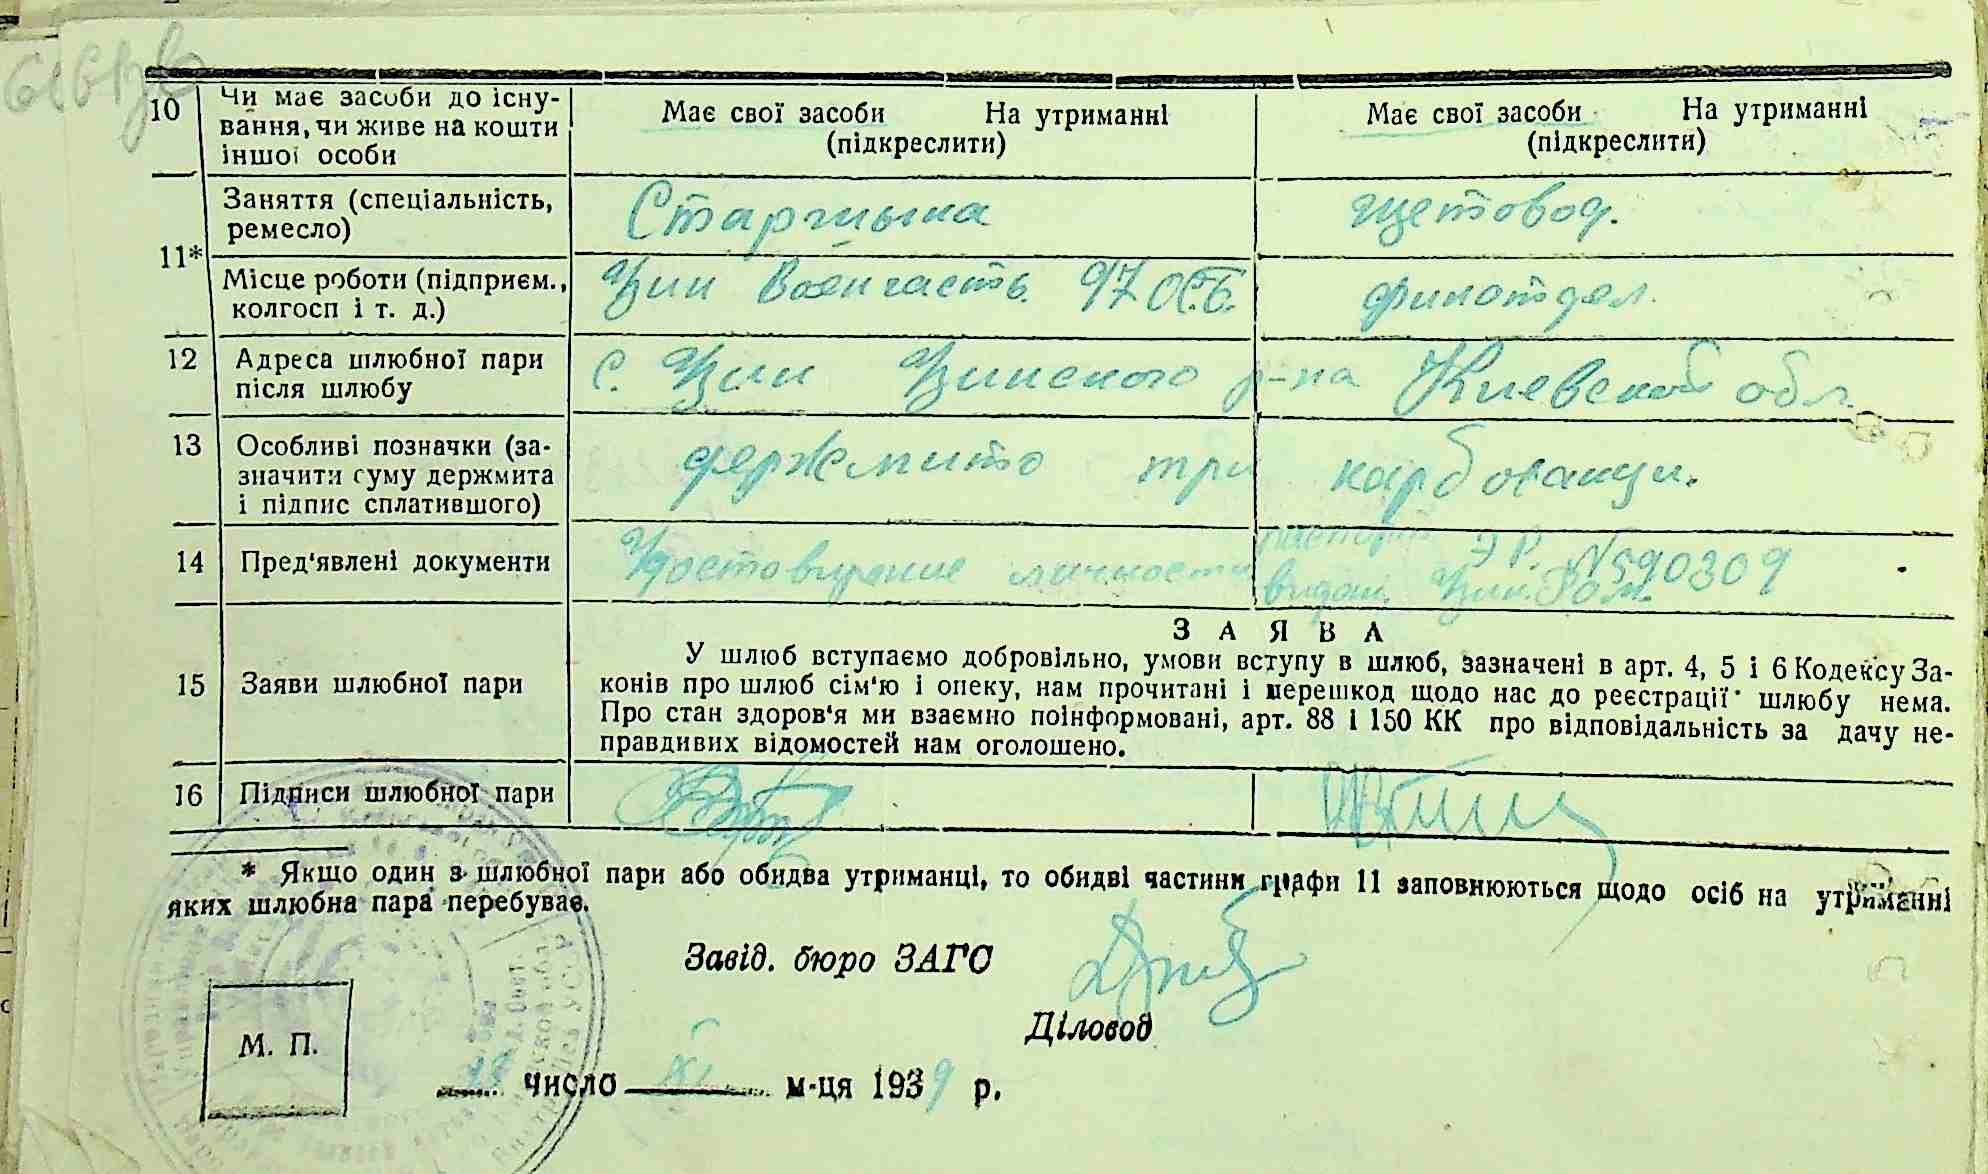 10 Чи має засоби до існу-
вання, чи живе на кошти
іншої особи
Має свої засоби На утриманні
(підкреслити)
Має свої засоби На утриманні
(підкреслити)
11*
Заняття (спеціальність,
ремесло)
Старшына
щетовод.
Місце роботи (підприєм.,
колгосп і т. д.)
Узин Воен часть 97
финотдел.
12 Адреса шлюбної пари
після шлюбу
с. Узин Узинского р-на Киевской обл.
13 Особливі позначки (за-
значити суму держмита
і підпис сплатившого)
держмито три карбованци.
14 Пред'явлені документи
Удостовирение личности
паспорт ЭР. №590309
видан. Узин. Р.о.м.
З А Я В А
15 Заяви шлюбної пари
У шлюб вступаємо добровільно, умови вступу в шлюб, зазначені в арт. 4, 5 і 6 Кодексу За-
конів про шлюб сім'ю і опеку, нам прочитані і перешкод щодо нас до реєстрації шлюбу нема.
Про стан здоров'я ми взаємно поінформовані, арт. 88 і 150 КК про відповідальність за дачу не-
правдивих відомостей нам оголошено.
16 Підписи шлюбної пари
* Якщо один з шлюбної пари або обидва утриманці, то обидві частини графи 11 заповнюються щодо осіб на утриманні
яких шлюбна пара перебуває.
Завід. бюро ЗАГС
Діловод
М. П.
число XI м-ця 1939 р.